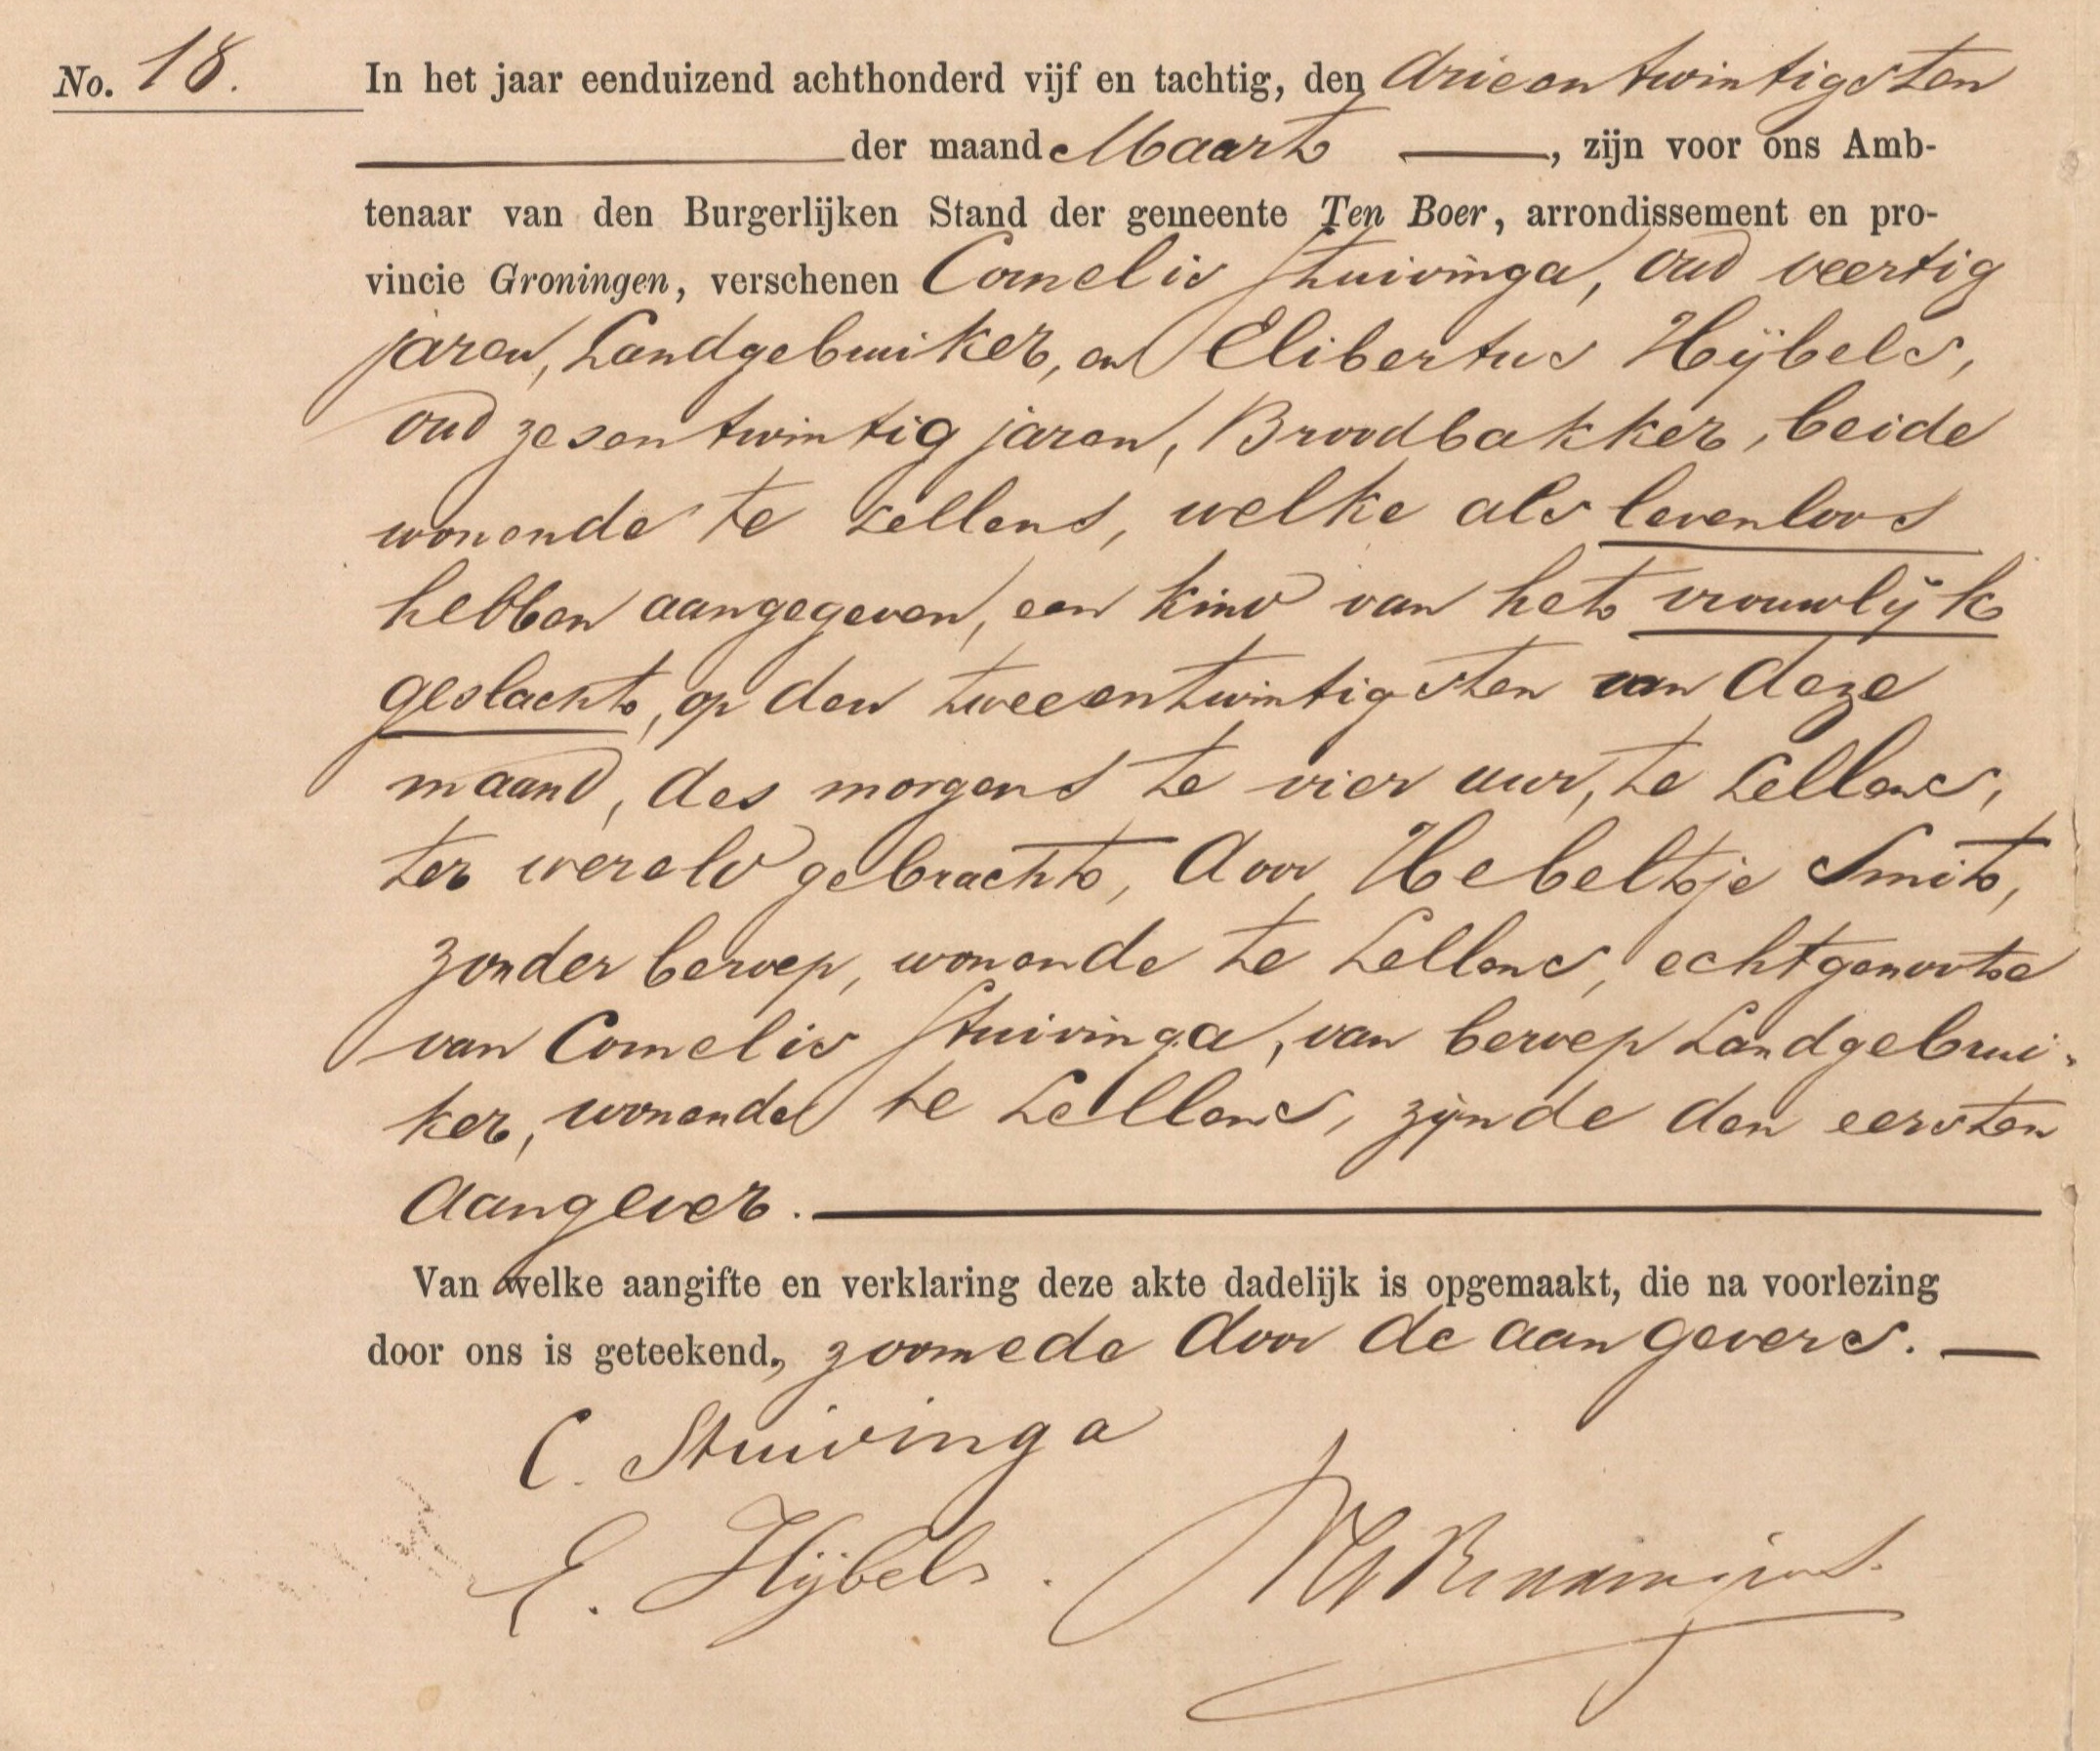 No. 18. In het jaar eenduizend achthonderd vijf en tachtig, den drieentwintigsten
der maand Maart, zijn voor ons Amb-
tenaar van den Burgerlijken Stand der gemeente Ten Boer, arrondissement en pro-
vincie Groningen, verschenen Cornelis Stuivinga, oud veertig
jaren, Landgebruiker, en Elibertus Hijbels,
oud zesentwintig jaren, Broodbakker, beide
wonende te Lellens, welke als levenloos
hebben aangegeven, een kind van het vrouwlijk
geslacht, op den tweeentwintigsten van deze
maand, des morgens te vier uur, te Lellens,
ter wereld gebracht, door Hebeltje Smit,
zonder beroep, wonende te Lellens, echtgenoote
van Cornelis Stuivinga, van beroep Landgebrui-
ker, wonende te Lellens, zijnde den eersten
aangever.
Van welke aangifte en verklaring deze akte dadelijk is opgemaakt, die na voorlezing
door ons is geteekend, zoomede door de aangevers.
C. Stuivinga
E. Hijbels.